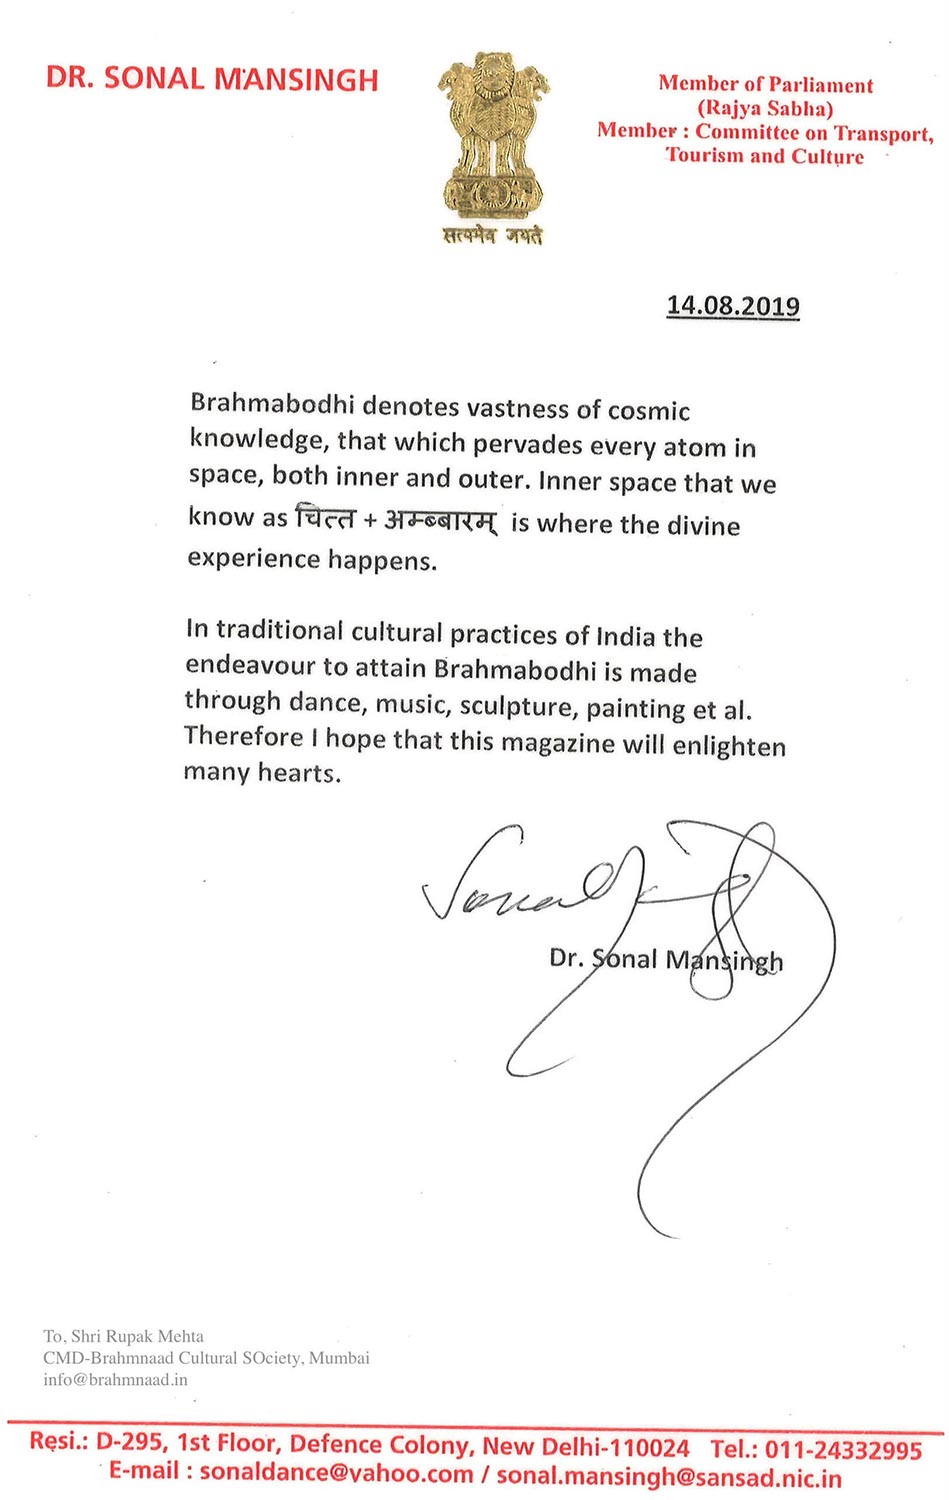 DR. SONAL MANSINGH
Member of Parliament
(Rajya Sabha)
Member : Committee on Transport,
Tourism and Culture
सत्यमेव जयते
14.08.2019
Brahmabodhi denotes vastness of cosmic
knowledge, that which pervades every atom in
space, both inner and outer. Inner space that we
know as चित्त + अम्ब्बारम् is where the divine
experience happens.
In traditional cultural practices of India the
endeavour to attain Brahmabodhi is made
through dance, music, sculpture, painting et al.
Therefore I hope that this magazine will enlighten
many hearts.
Sonal
Dr. Sonal Mansingh
To, Shri Rupak Mehta
CMD-Brahmnaad Cultural SOciety, Mumbai
info@brahmnaad.in
Resi.: D-295, 1st Floor, Defence Colony, New Delhi-110024 Tel.: 011-24332995
E-mail : sonaldance@yahoo.com / sonal.mansingh@sansad.nic.in